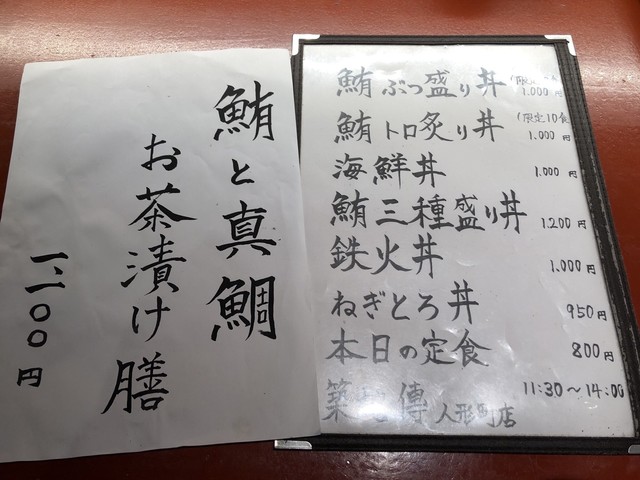 鮪と真鯛
お茶漬け膳
一二〇〇円
鮪ぶつ盛り丼
1.000円
鮪トロ炙り丼 (限定10食
1.000円
海鮮丼 1.000円
鮪三種盛り丼 1.200円
鉄火丼 1.000円
ねぎとろ丼 950円
本日の定食 800円
11:30〜14:00
築 傳 人形町店